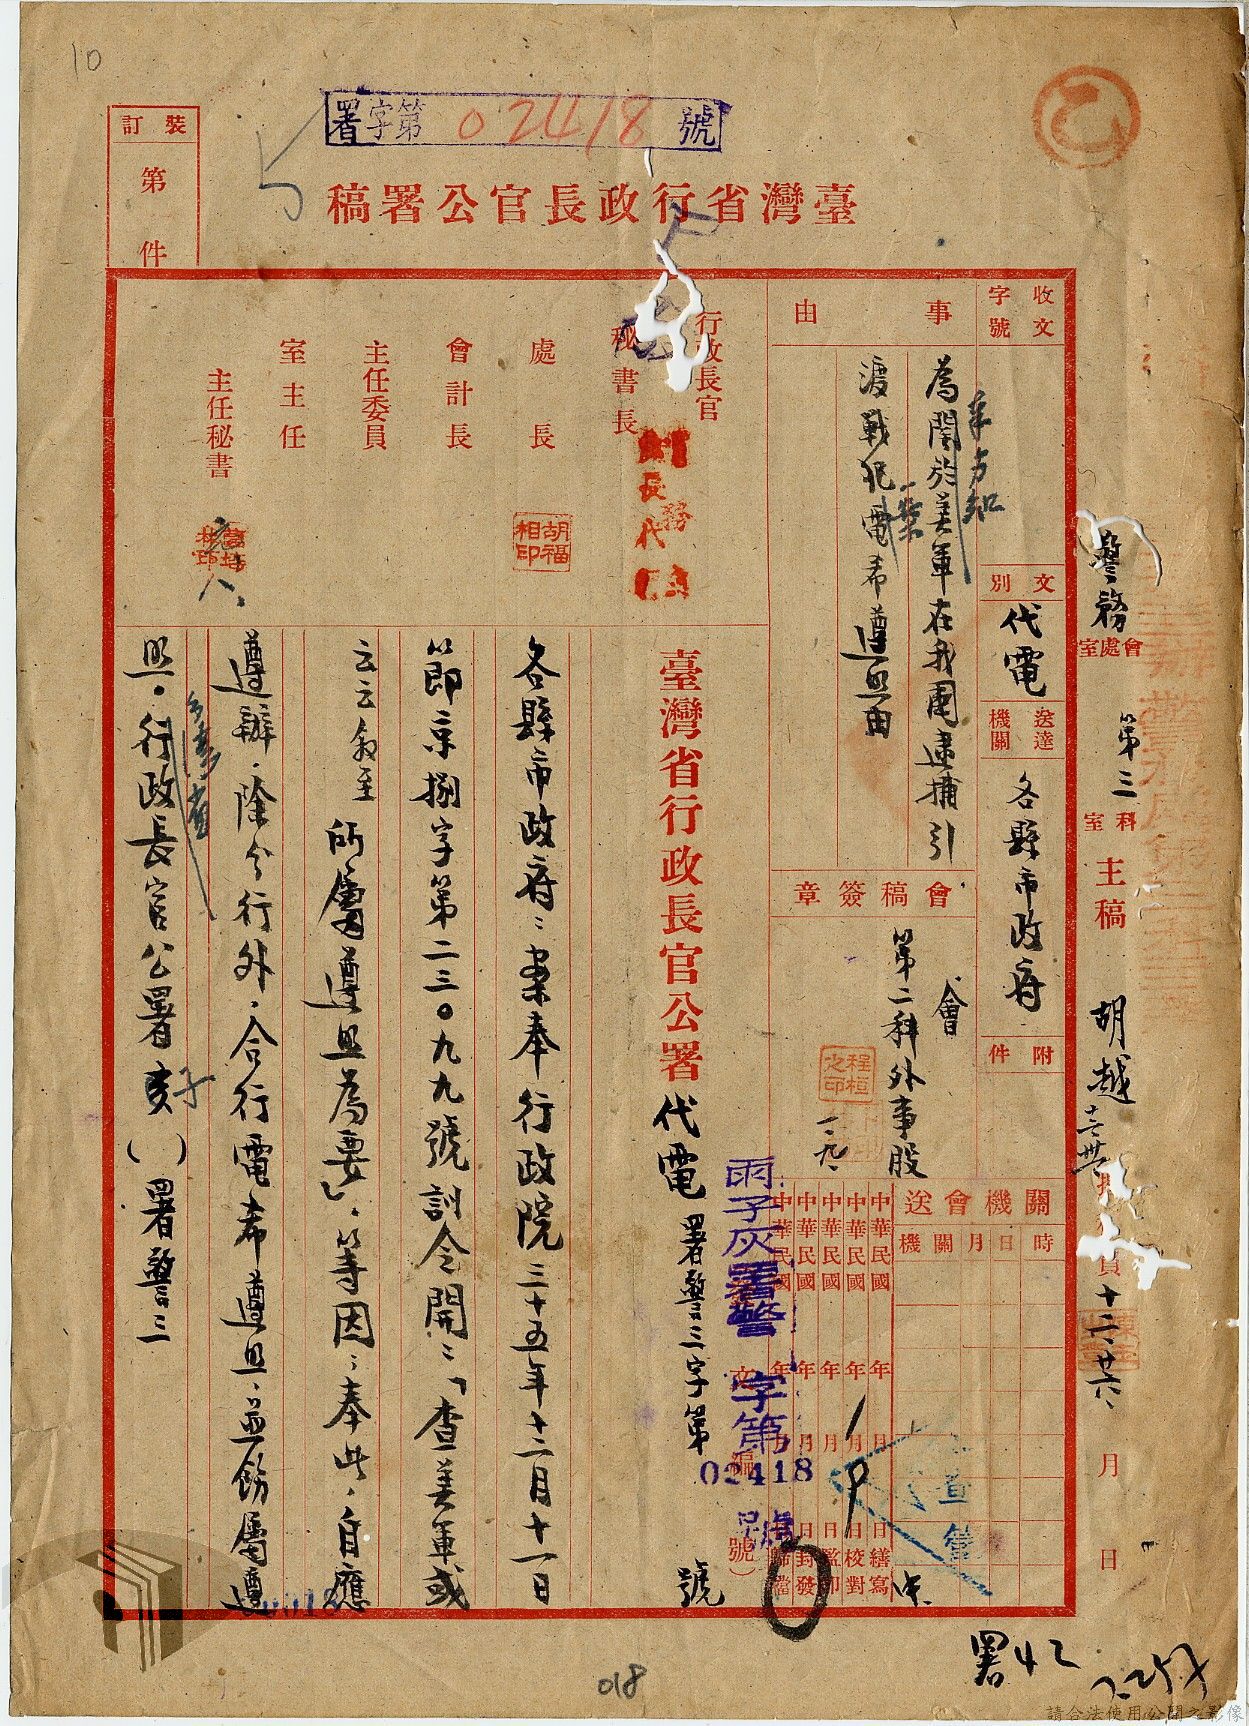 10
署字第 02418 號
乙
裝訂
第
件
臺灣省行政長官公署稿
收文
字號
文別
代電
送達
機關
各縣市政府
附件
事由
為關於美軍在我國逮捕引
渡戰犯一案電希遵照由
會稿簽章
會
第二科外事股
程桓之印
關機會送
時日月關機
中華民國 年 月 日繕寫
中華民國 年 月 日校對
中華民國 年 月 日監印
中華民國 年 月 日封發
中華民國 年 月 日歸檔
警務
會處室
第三
科室
主稿
胡越
十二、廿六、
月
日
行政長官
秘書長
處長
胡福相印
會計長
主任委員
室主任
主任秘書
臺灣省行政長官公署代電 署警三字第 號
雨子灰署警 字第
02418
號
各縣市政府：案奉行政院三十五年十二月十一日
節京捌字第二三〇九九號訓令開：「查美軍或
云云敘至 所屬遵照為要」。等因；奉此，自應
遵辦。除分行外，合行電希遵照，並飭屬遵
照。行政長官公署亥子（ ）署警三
查
署42
018
請合法使用公開之影像